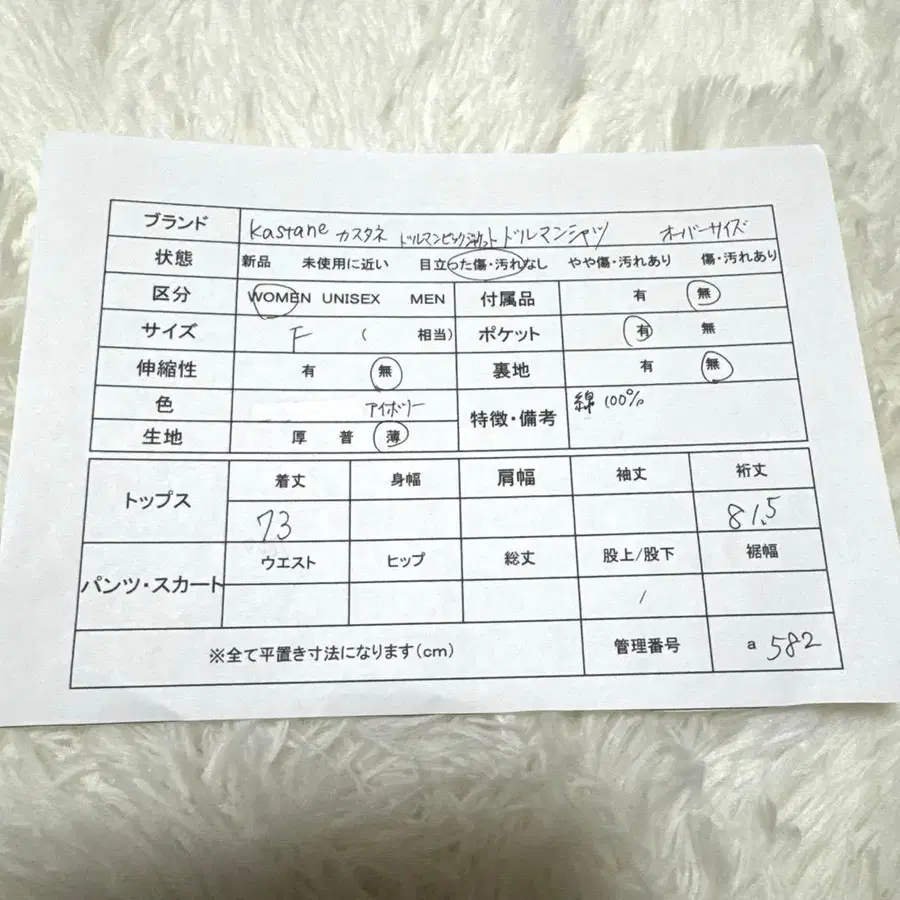 ブランド Kastane カスタネ ドルマンビッグジャケット ドルマンシャツ オーバーサイズ
状態 新品 未使用に近い 目立った傷・汚れなし やや傷・汚れあり 傷・汚れあり
区分 WOMEN UNISEX MEN 付属品 有 無
サイズ F ( 相当) ポケット 有 無
伸縮性 有 無 裏地 有 無
色 アイボリー 特徴・備考 綿 100%
生地 厚 普 薄
トップス 着丈 身幅 肩幅 袖丈 裄丈
73 81.5
パンツ・スカート ウエスト ヒップ 総丈 股上/股下 裾幅
/
※全て平置き寸法になります(cm) 管理番号 a 582